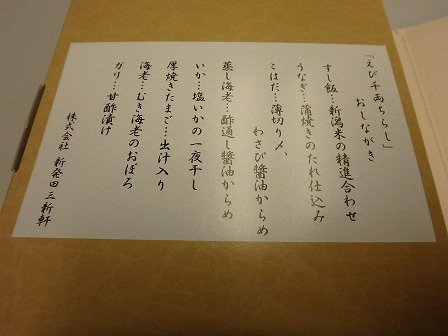 「えび千両ちらし」
おしながき
すし飯…新潟米の精進合わせ
うなぎ…蒲焼きのたれ仕込み
こはだ…薄切り〆、
わさび醤油からめ
蒸し海老…酢通し醤油からめ
いか…塩いかの一夜干し
厚焼きたまご…出汁入り
海老…むき海老のおぼろ
ガリ…甘酢漬け
株式会社 新発田三新軒